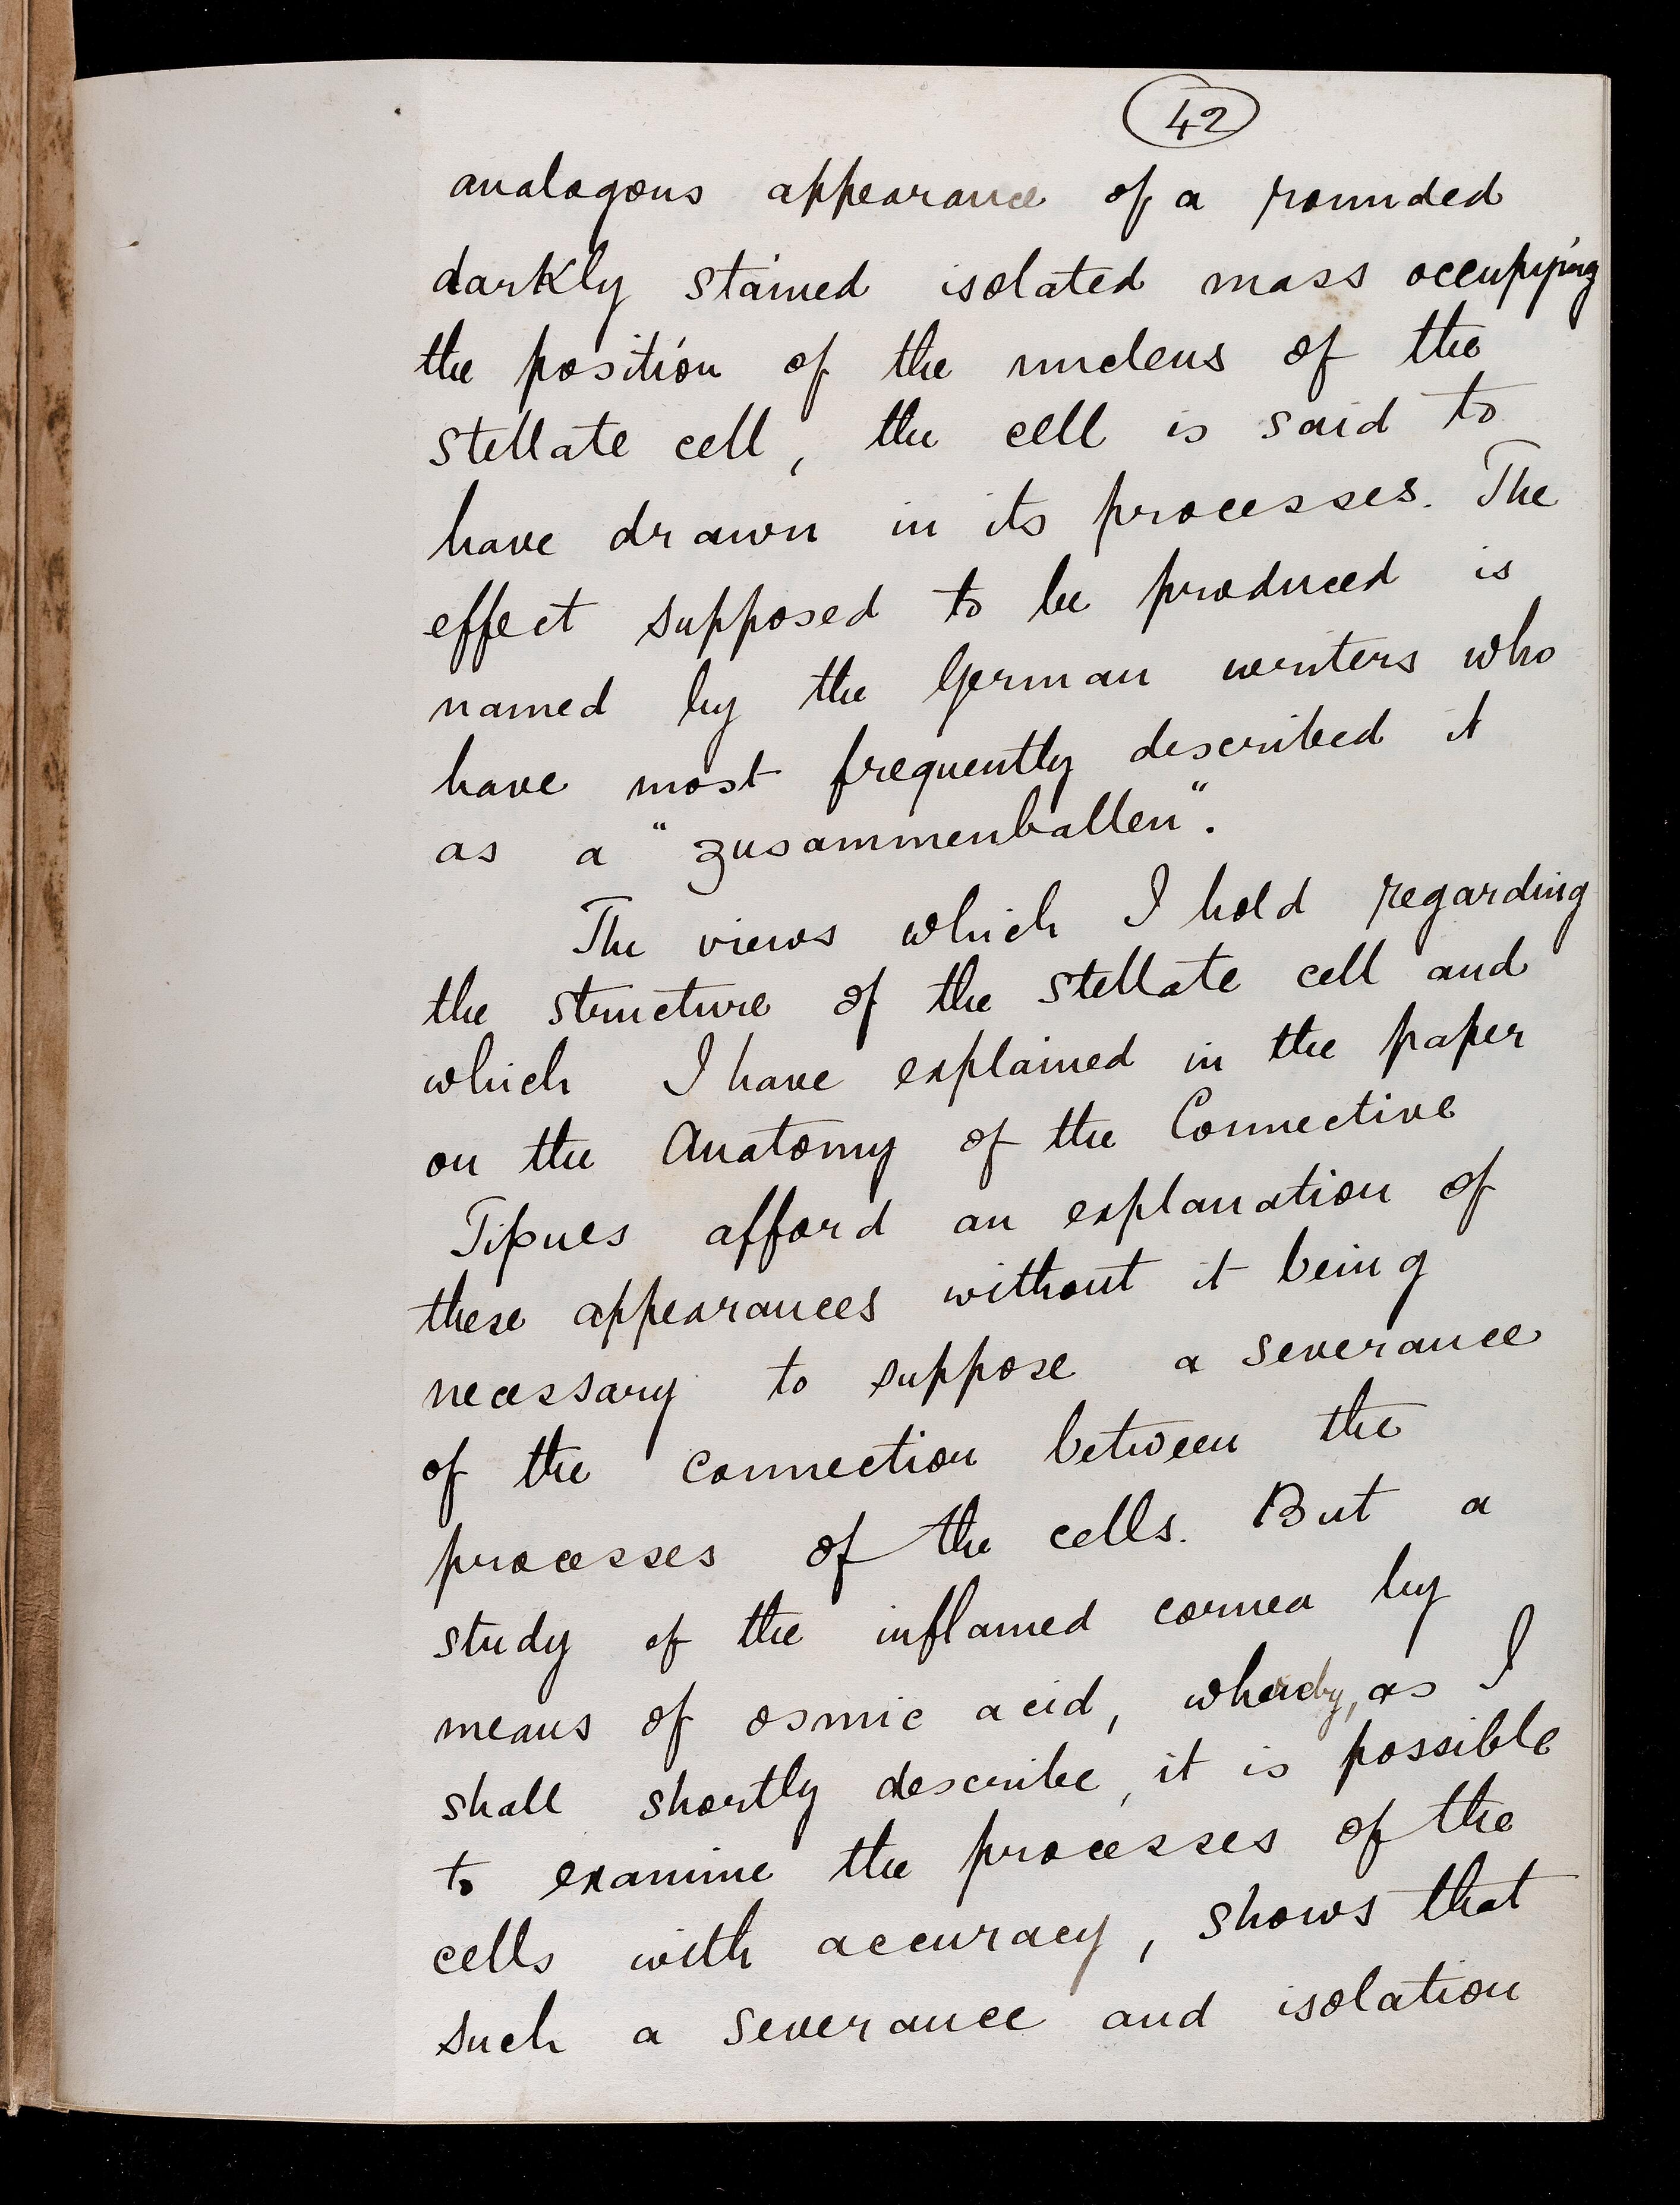 42
analogous appearance of a rounded
darkly stained isolated mass occupying
the position of the nucleus of the
stellate cell, the cell is said to
have drawn in its processes. The
effect supposed to be produced is
named by the German writers who
have most frequently described it
as a "zusammenballen".
The views which I hold regarding
the structure of the stellate cell and
which I have explained in the paper
on the Anatomy of the Connective
Tissues afford an explanation of
these appearances without it being
necessary to suppose a severance
of the connection between the
processes of the cells. But a
study of the inflamed cornea by
means of osmic acid, whereby, as I
shall shortly describe, it is possible
to examine the processes of the
cells with accuracy, shows that
such a severance and isolation